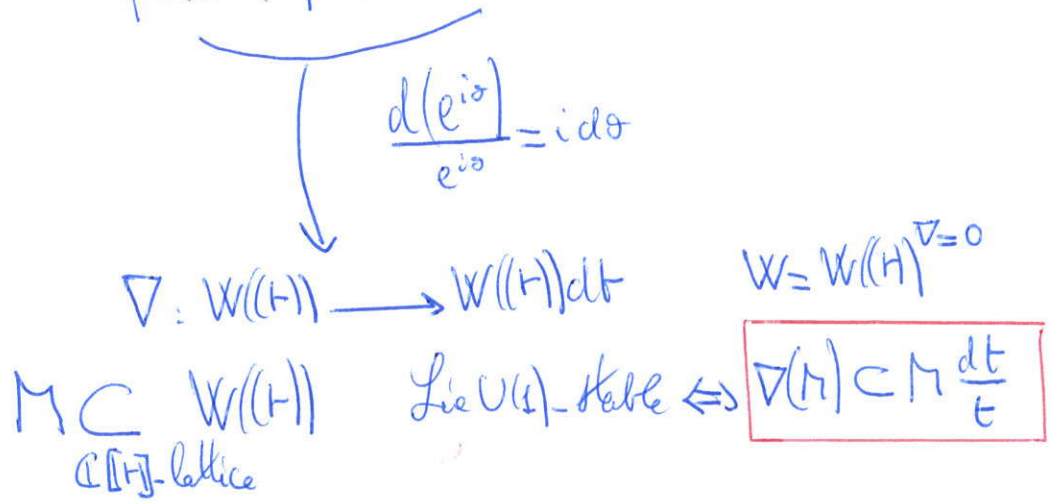 d(e^{iθ})/e^{iθ} = i dθ
∇: W((t)) → W((t))dt W = W((t))^{∇=0}
M ⊂ W((t)) Lie U(1)-stable ⇔ ∇(M) ⊂ M dt/t
ℂ[[t]]-lattice